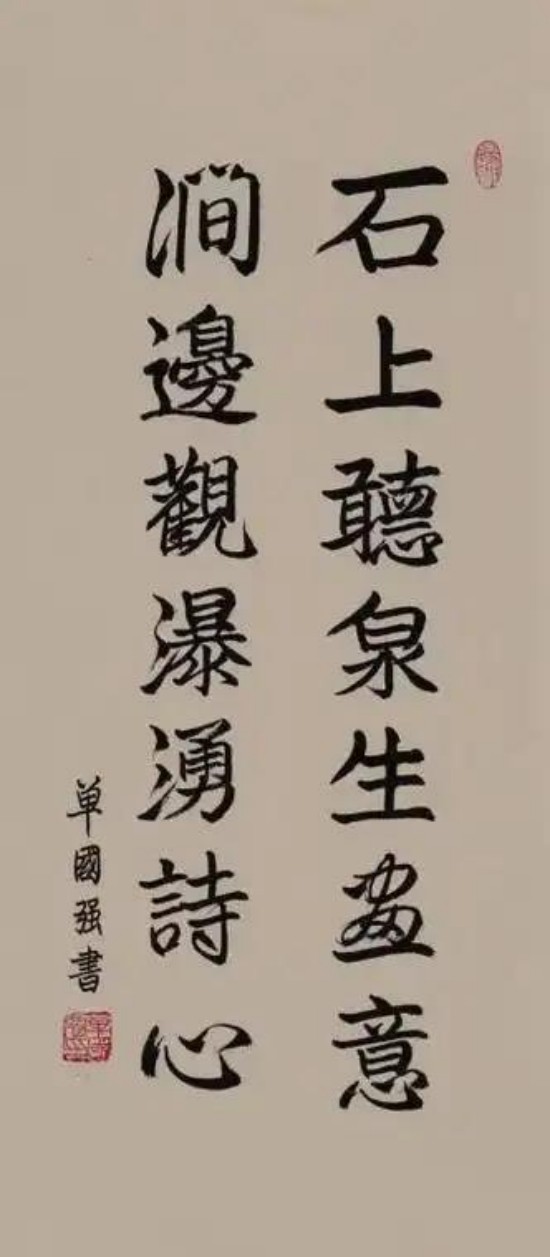 石上聽泉生畫意
澗邊觀瀑湧詩心
单國强書